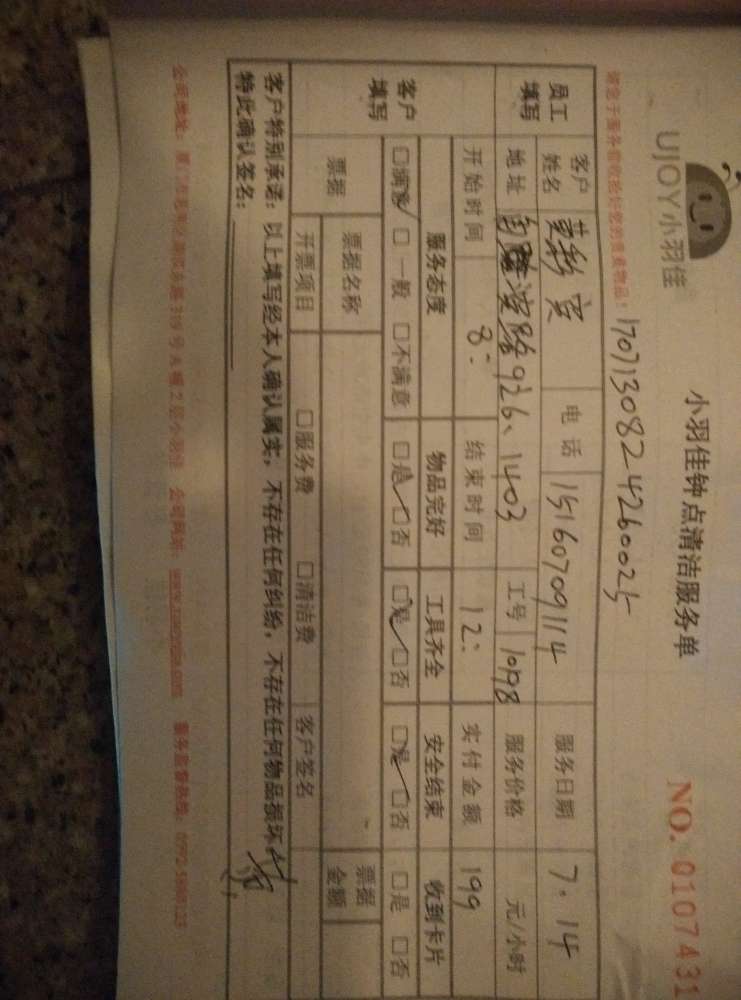 UJOY小羽佳
小羽佳钟点清洁服务单
NO. 0107431
170713082426002
员工填写
客户姓名 电话 15160709114 服务日期 7.14
地址 926、1403 工号 服务价格 元/小时
开始时间 8: 结束时间 12: 实付金额 199
客户填写
服务态度 物品完好 工具齐全 安全结束 收到卡片
□满意✓ □一般 □不满意 □是✓ □否 □是✓ □否 □是✓ □否 □是 □否
票据 票据名称 票据金额
开票项目 □服务费 □清洁费 客户签名
客户特别承诺：以上填写经本人确认属实，不存在任何纠纷，不存在任何物品损坏
特此确认签名：
公司地址： 公司网站： 服务监督热线：